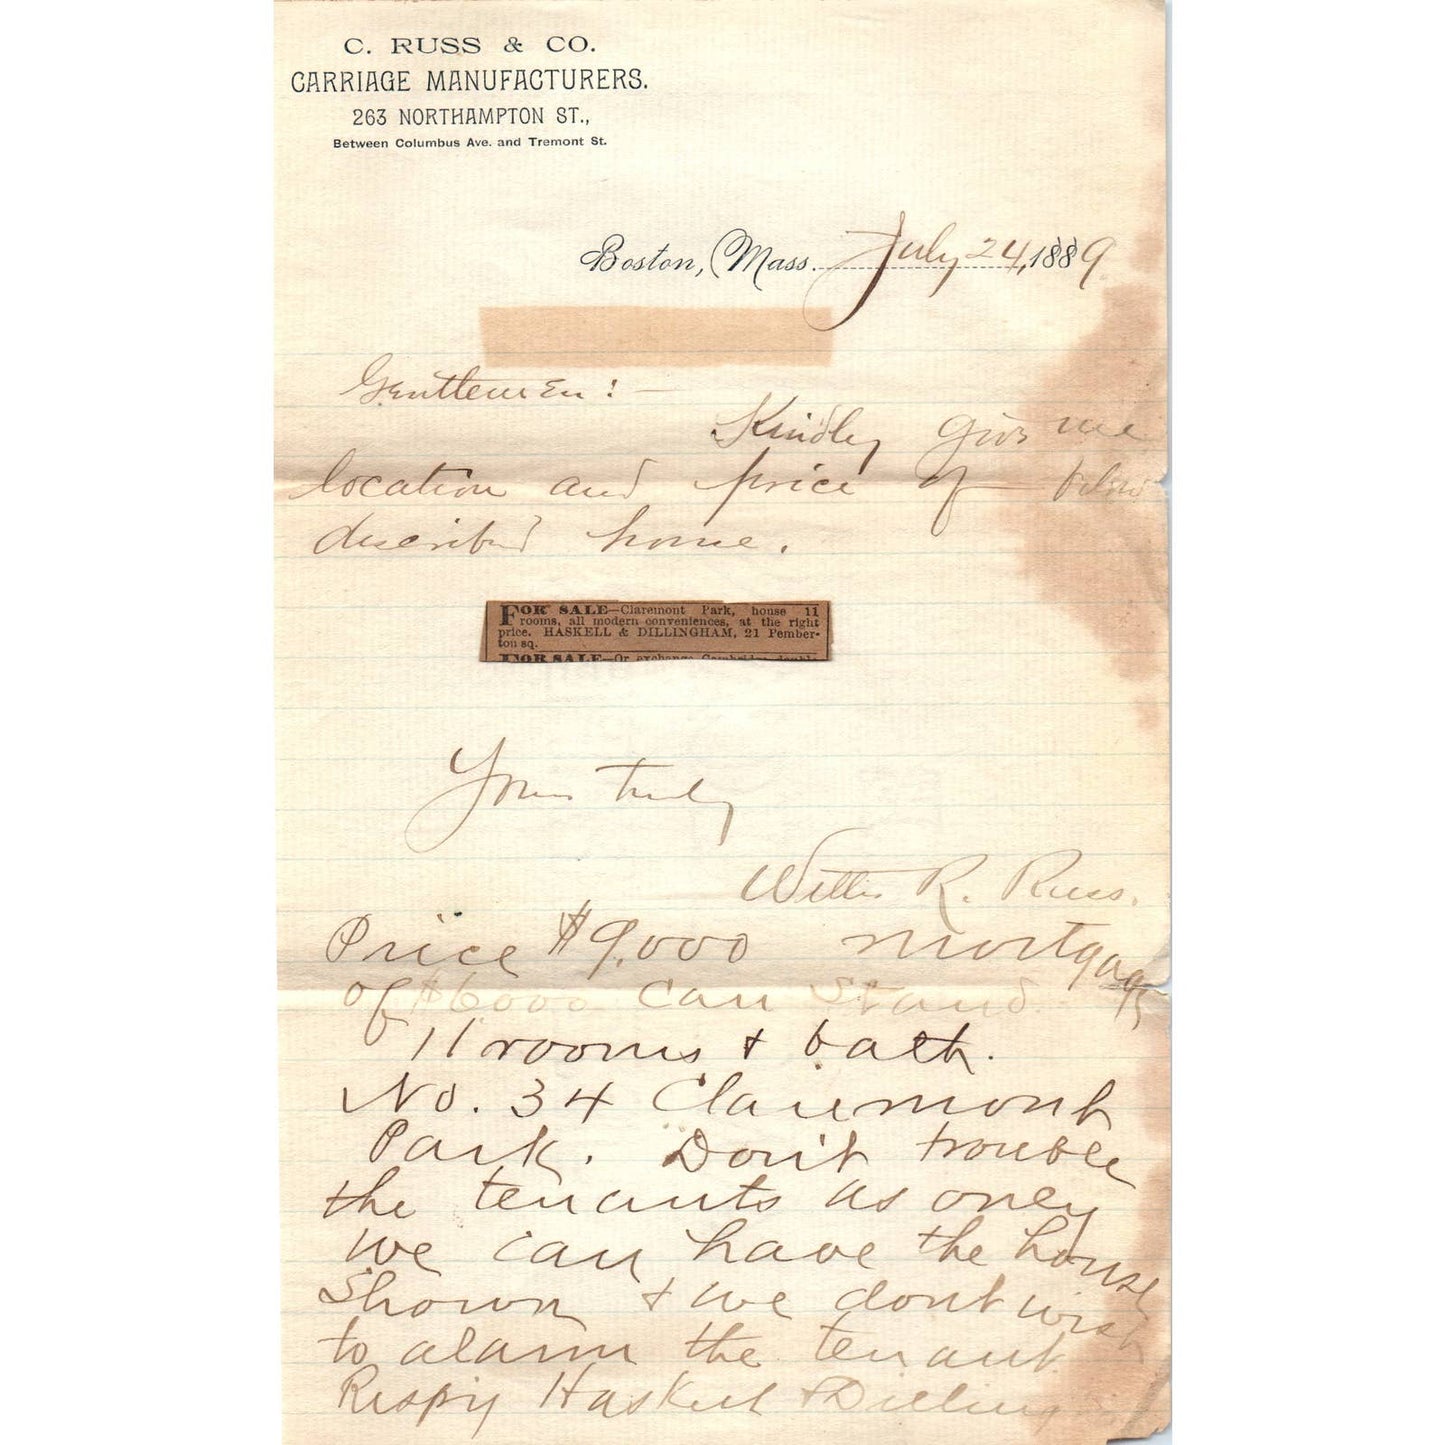 C. RUSS & CO.
CARRIAGE MANUFACTURERS.
263 NORTHAMPTON ST.,
Between Columbus Ave. and Tremont St.
Boston, Mass. July 24, 1889
Gentlemen:—
Kindly give me
location and price of below
described house.
FOR SALE—Claremont Park, house 11
rooms, all modern conveniences, at the right
price. HASKELL & DILLINGHAM, 21 Pember-
ton sq.
FOR SALE—Or exchange Cambridge double
Yours truly
Willis R. Russ.
Price $9,000 mortgage
of $6000 can stand.
11 rooms & bath.
No. 34 Claremont
Park. Don't trouble
the tenants as only
we can have the house
shown & we dont wish
to alarm the tenant
Respy Haskell & Dilling